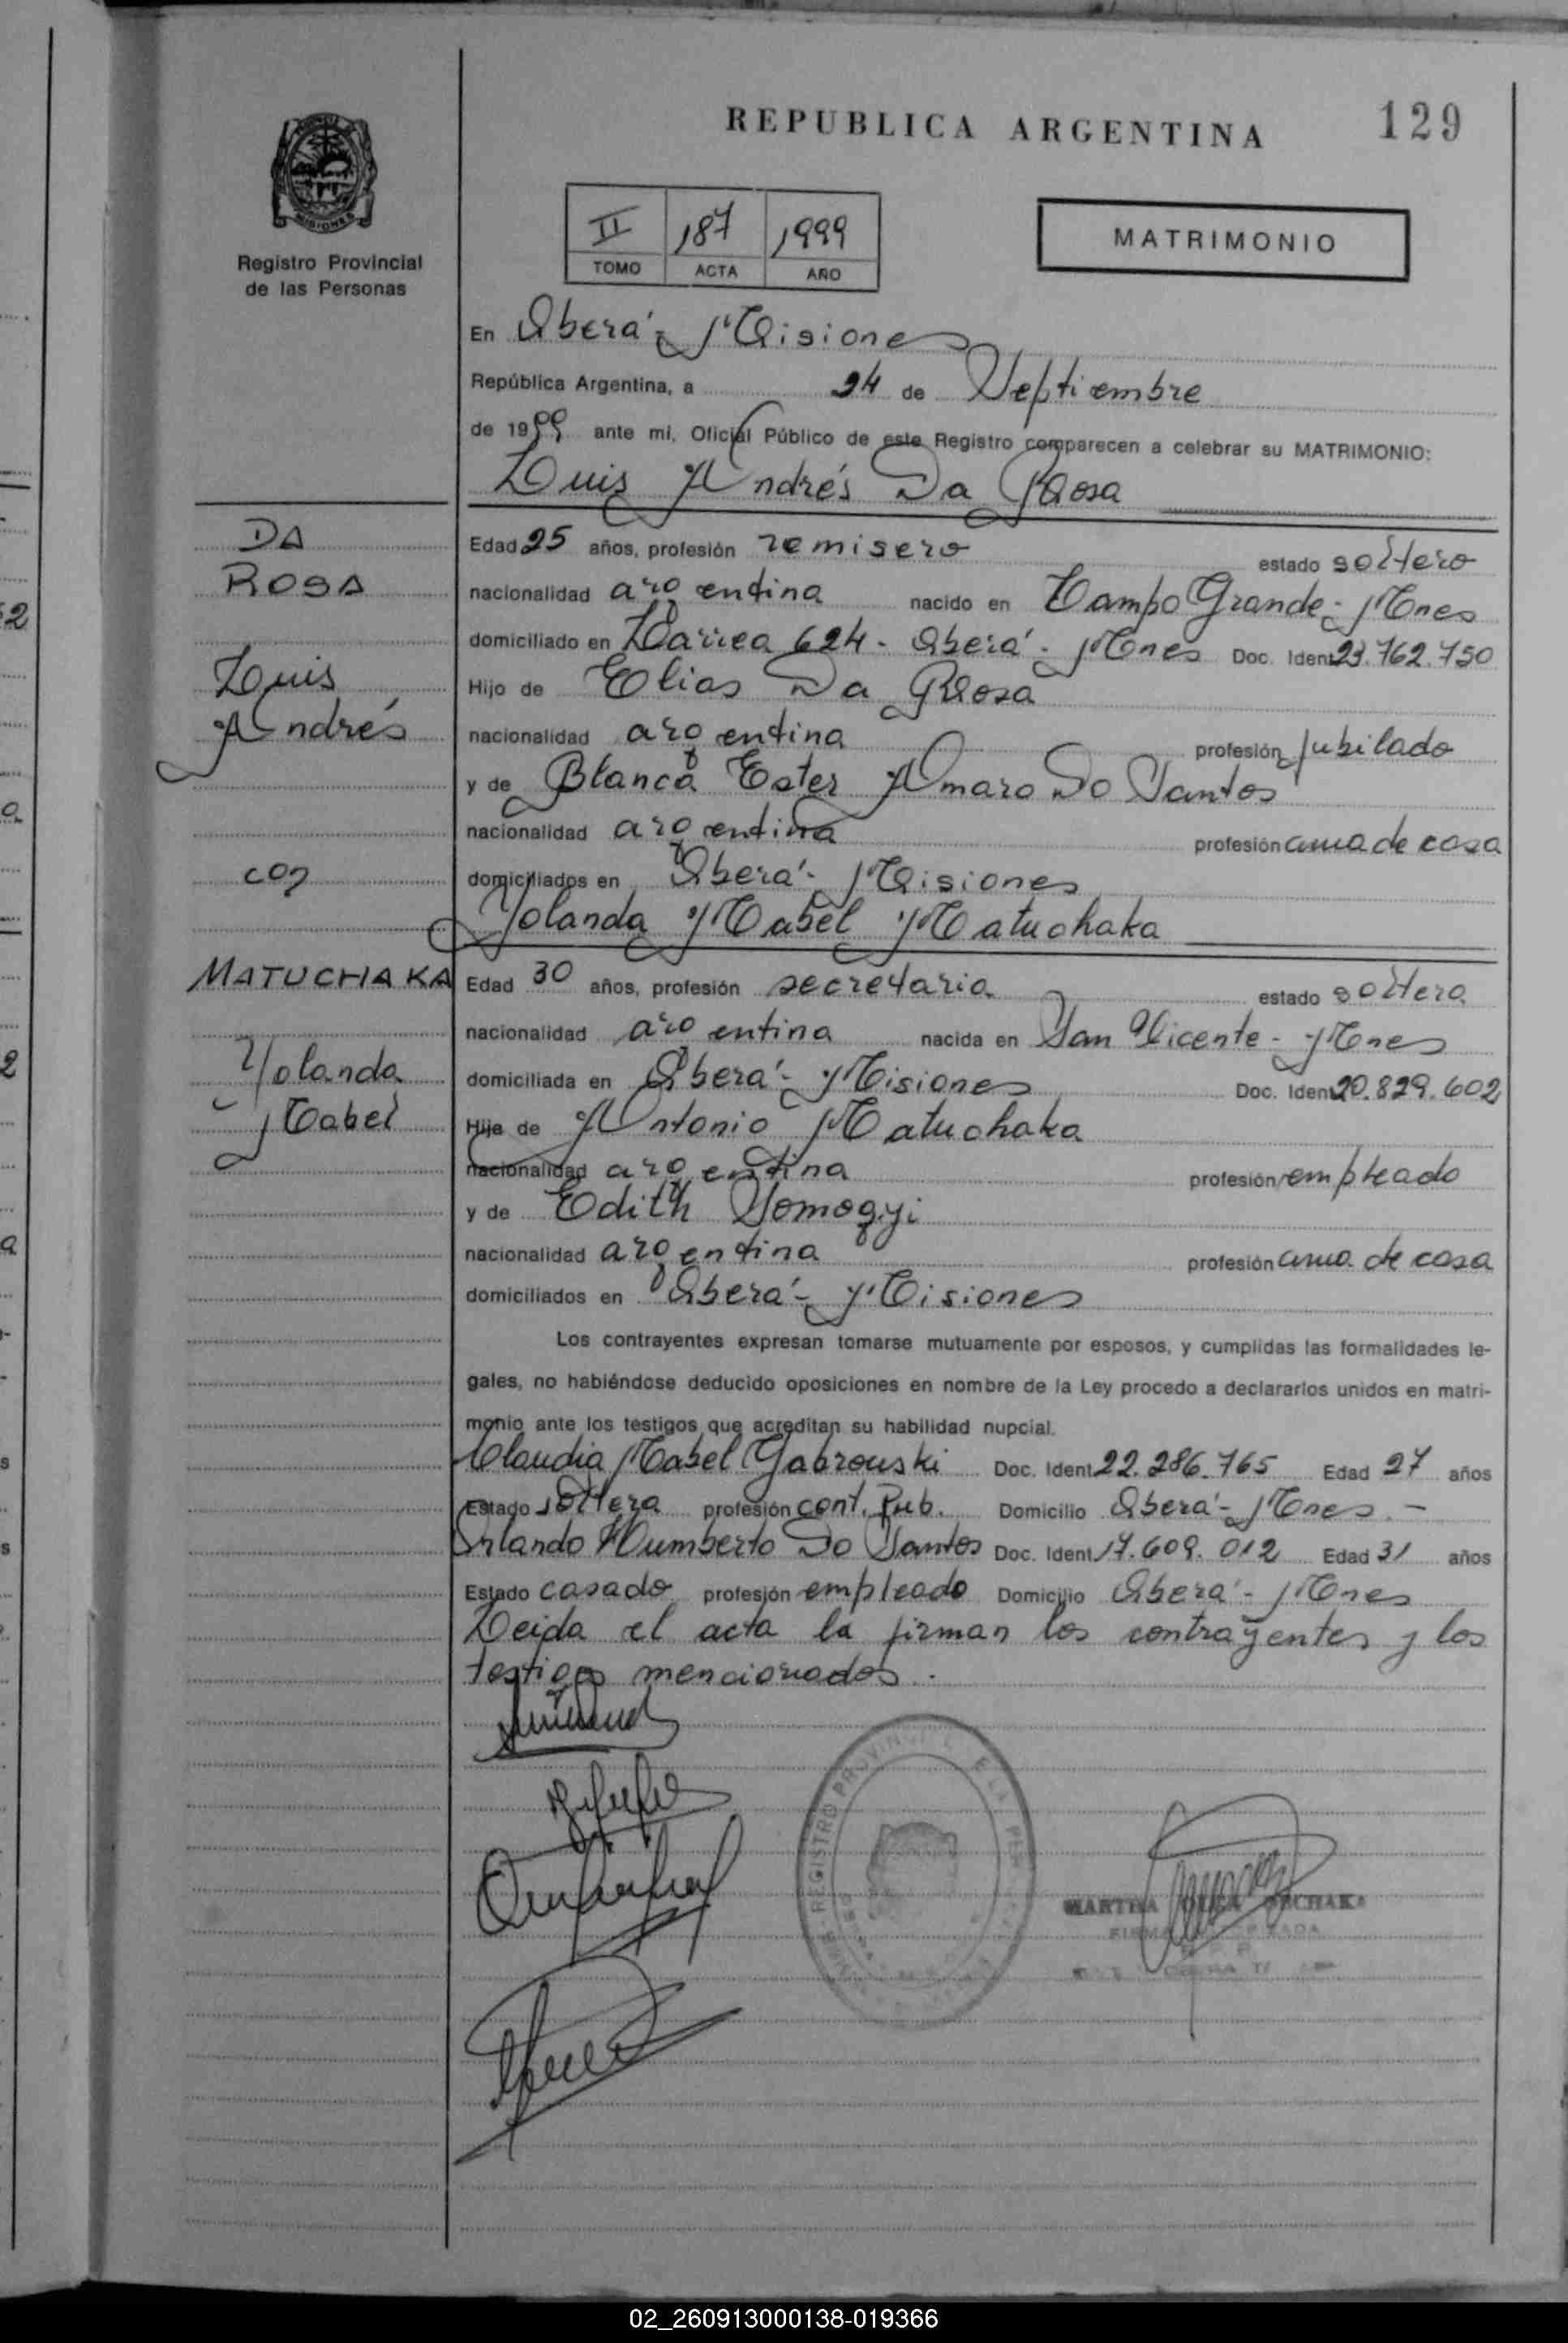 REPUBLICA ARGENTINA
129
Registro Provincial
de las Personas
II 187 1999
TOMO ACTA AÑO
MATRIMONIO
En Oberá - Misiones
República Argentina, a 24 de Septiembre
de 1999 ante mi, Oficial Público de este Registro comparecen a celebrar su MATRIMONIO:
Luis Andrés Da Rosa
DA
ROSA
Luis
Andrés
con
MATUCHAKA
Yolanda
Mabel
Edad 25 años, profesión remisero estado soltero
nacionalidad argentina nacido en Campo Grande - Mnes
domiciliado en Larrea 624 - Oberá - Mnes Doc. Ident 23.762.750
Hijo de Elias Da Rosa
nacionalidad argentina profesión jubilado
y de Blanca Ester Amaro Do Santos
nacionalidad argentina profesión ama de casa
domiciliados en Oberá - Misiones
Yolanda Mabel Matuchaka
Edad 30 años, profesión secretaria estado soltera
nacionalidad argentina nacida en San Vicente - Mnes
domiciliada en Oberá - Misiones Doc. Ident 20.829.602
Hija de Antonio Matuchaka
nacionalidad argentina profesión empleado
y de Edith Somogyi
nacionalidad argentina profesión ama de casa
domiciliados en Oberá - Misiones
Los contrayentes expresan tomarse mutuamente por esposos, y cumplidas las formalidades le-
gales, no habiéndose deducido oposiciones en nombre de la Ley procedo a declararlos unidos en matri-
monio ante los testigos que acreditan su habilidad nupcial.
Claudia Mabel Gabrouski Doc. Ident 22.286.765 Edad 27 años
Estado soltera profesión cont. Pub. Domicilio Oberá - Mnes. -
Orlando Humberto Do Santos Doc. Ident 17.609.012 Edad 31 años
Estado casado profesión empleado Domicilio Oberá - Mnes
Leida el acta la firman los contrayentes y los
testigos mencionados.
REGISTRO PROVINCIAL DE LAS
MARTHA
02_260913000138-019366